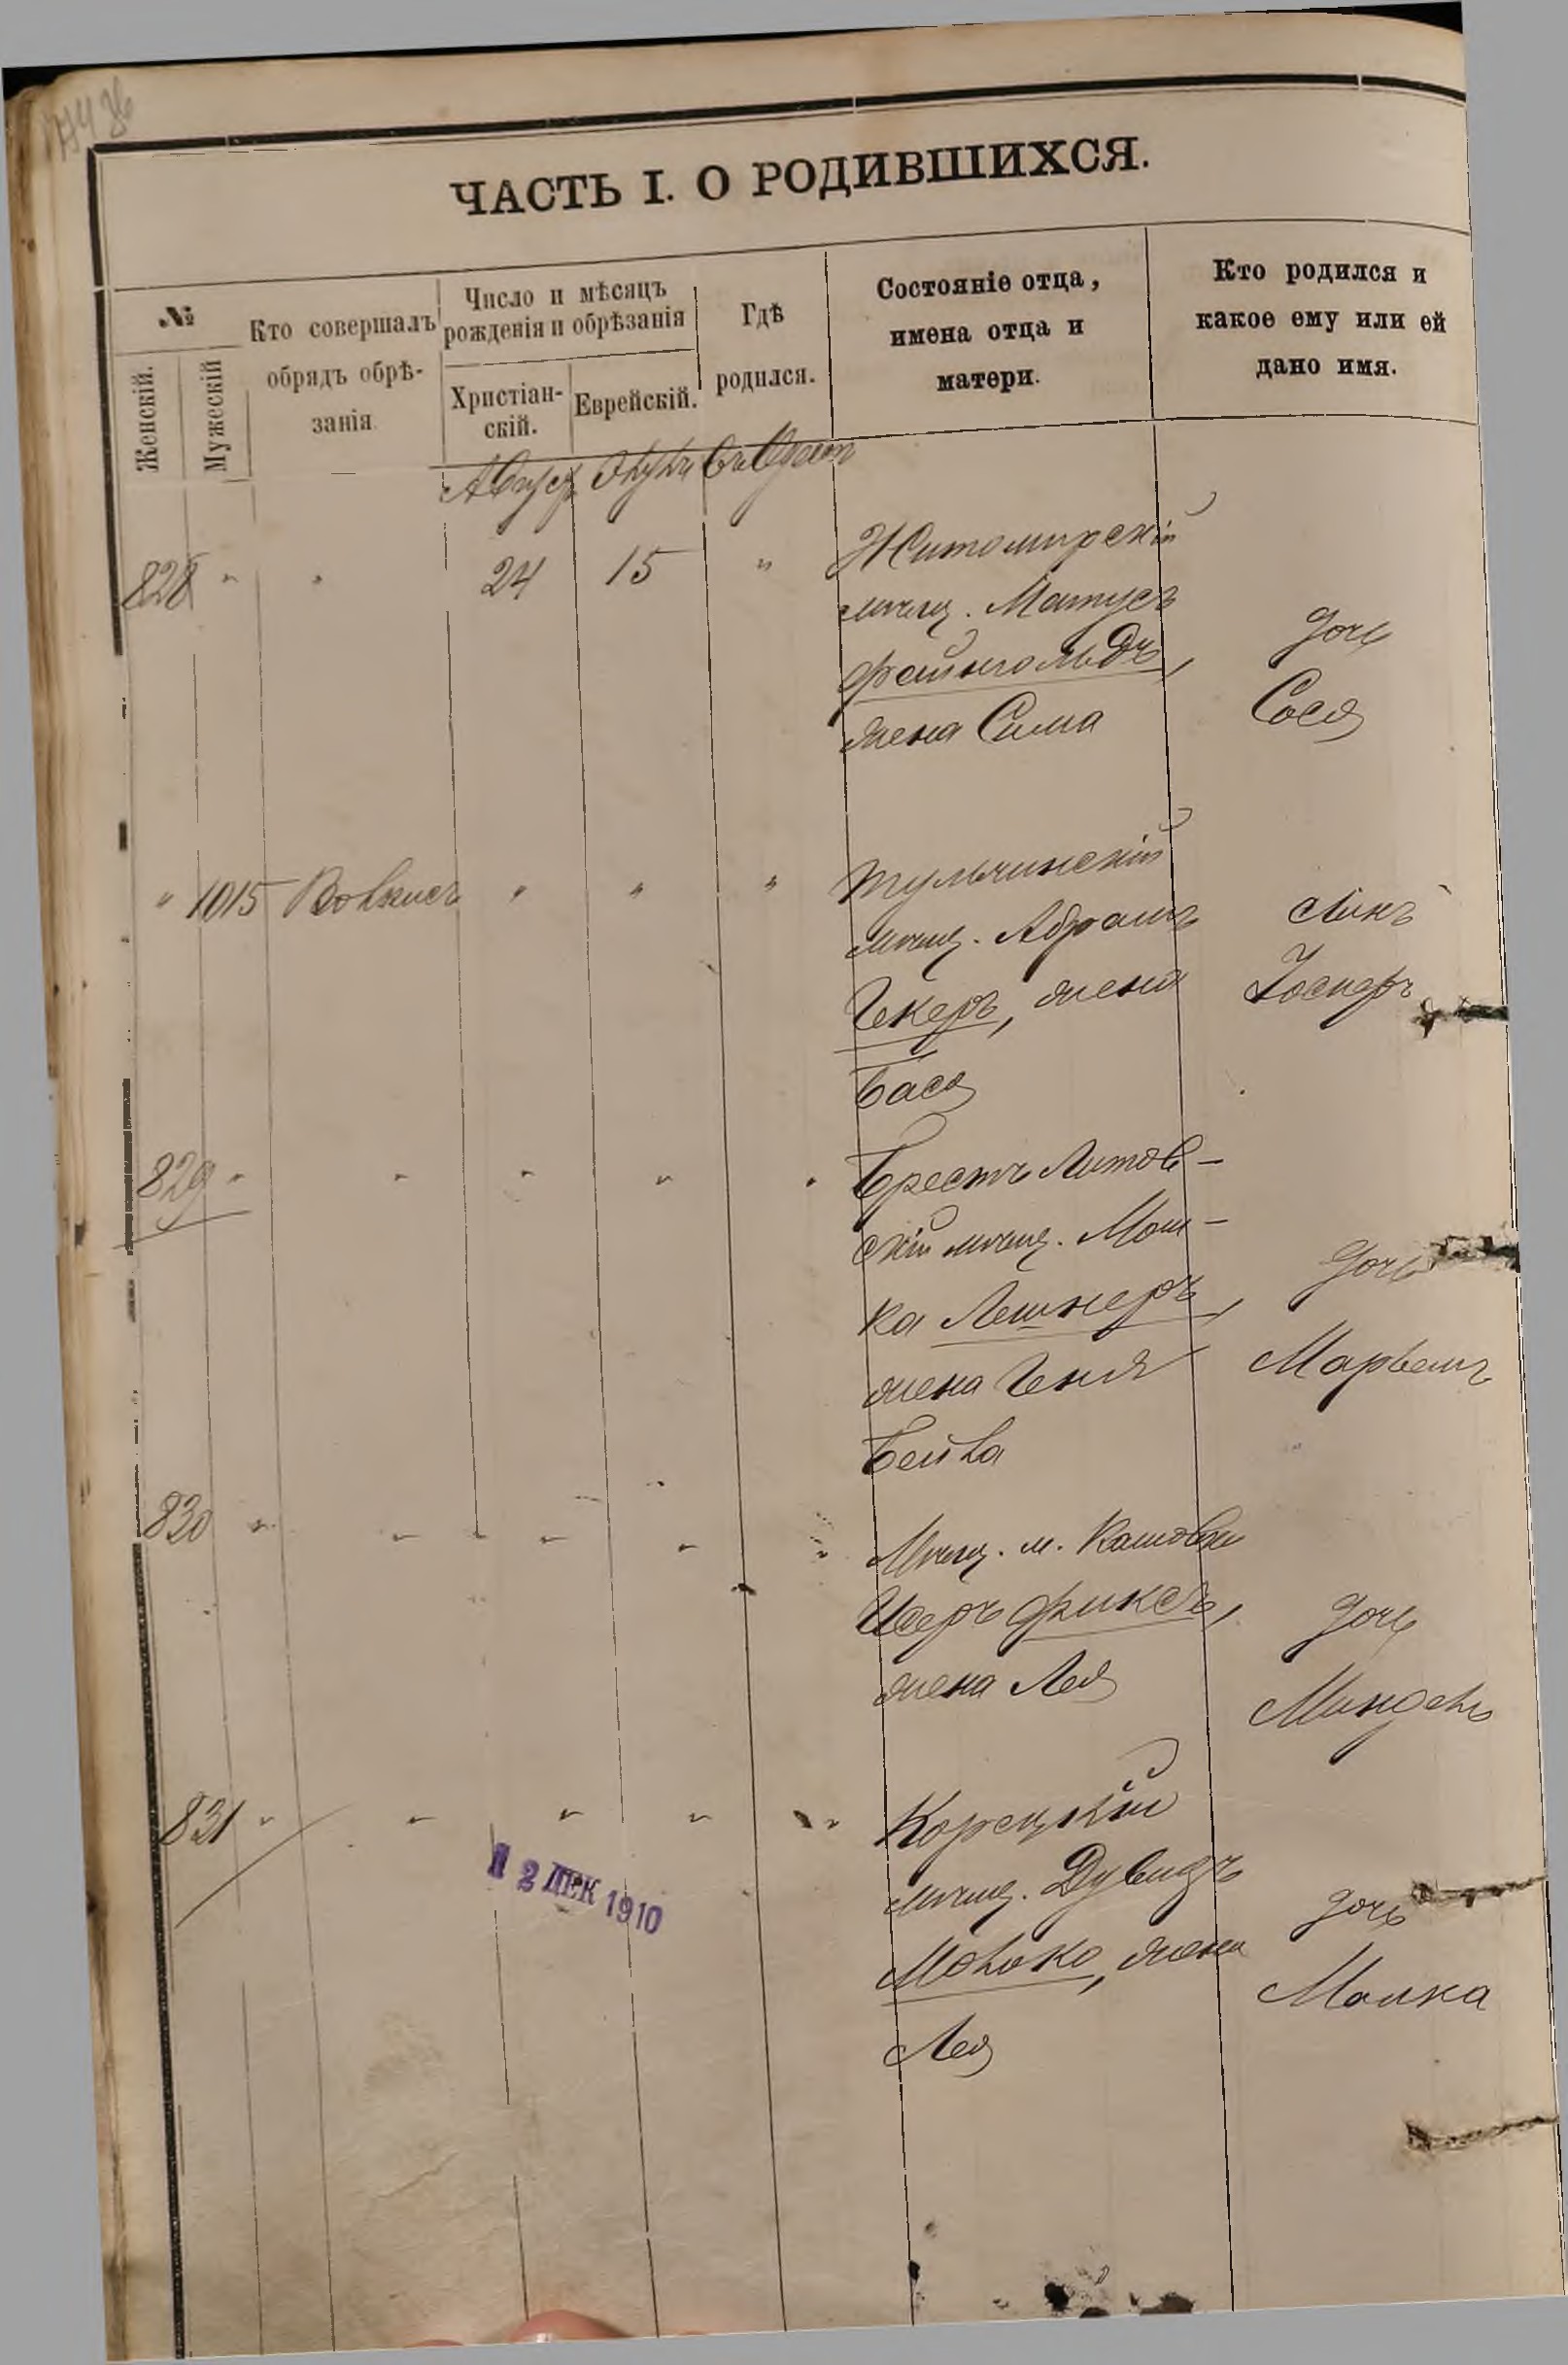 ЧАСТЬ I. О РОДИВШИХСЯ.
№
Женскій.
Мужескій
Кто совершалъ
обрядъ обрѣ-
занія
Число и мѣсяцъ
рожденія и обрѣзанія
Христіан-
скій.
Еврейскій.
Гдѣ
родился.
Состояніе отца,
имена отца и
матери.
Кто родился и
какое ему или ей
дано имя.
Август Элулъ
828 " " 24 15 "
Житомирскій
мѣщ. Матусъ
Файнгольдъ,
жена Сима
дочь
Сося
" 1015 Вольисъ " " "
Тульчинскій
мѣщ. Абрамъ
Чекеръ, жена
Бася
сынъ
Іосперъ
829 " " " " "
Брестъ Литов-
скій мѣщ. Мош-
ка Лешнеръ,
жена Геня
Бейла
дочь
830 " " " " "
Мѣщ. м.
Исеръ Фиксъ,
жена Лея
дочь
Миндель
831 " " " " "
Корецкій
мѣщ. Дувидъ
Молоко, жена
Лея
дочь
Малка
2 ДЕК 1910